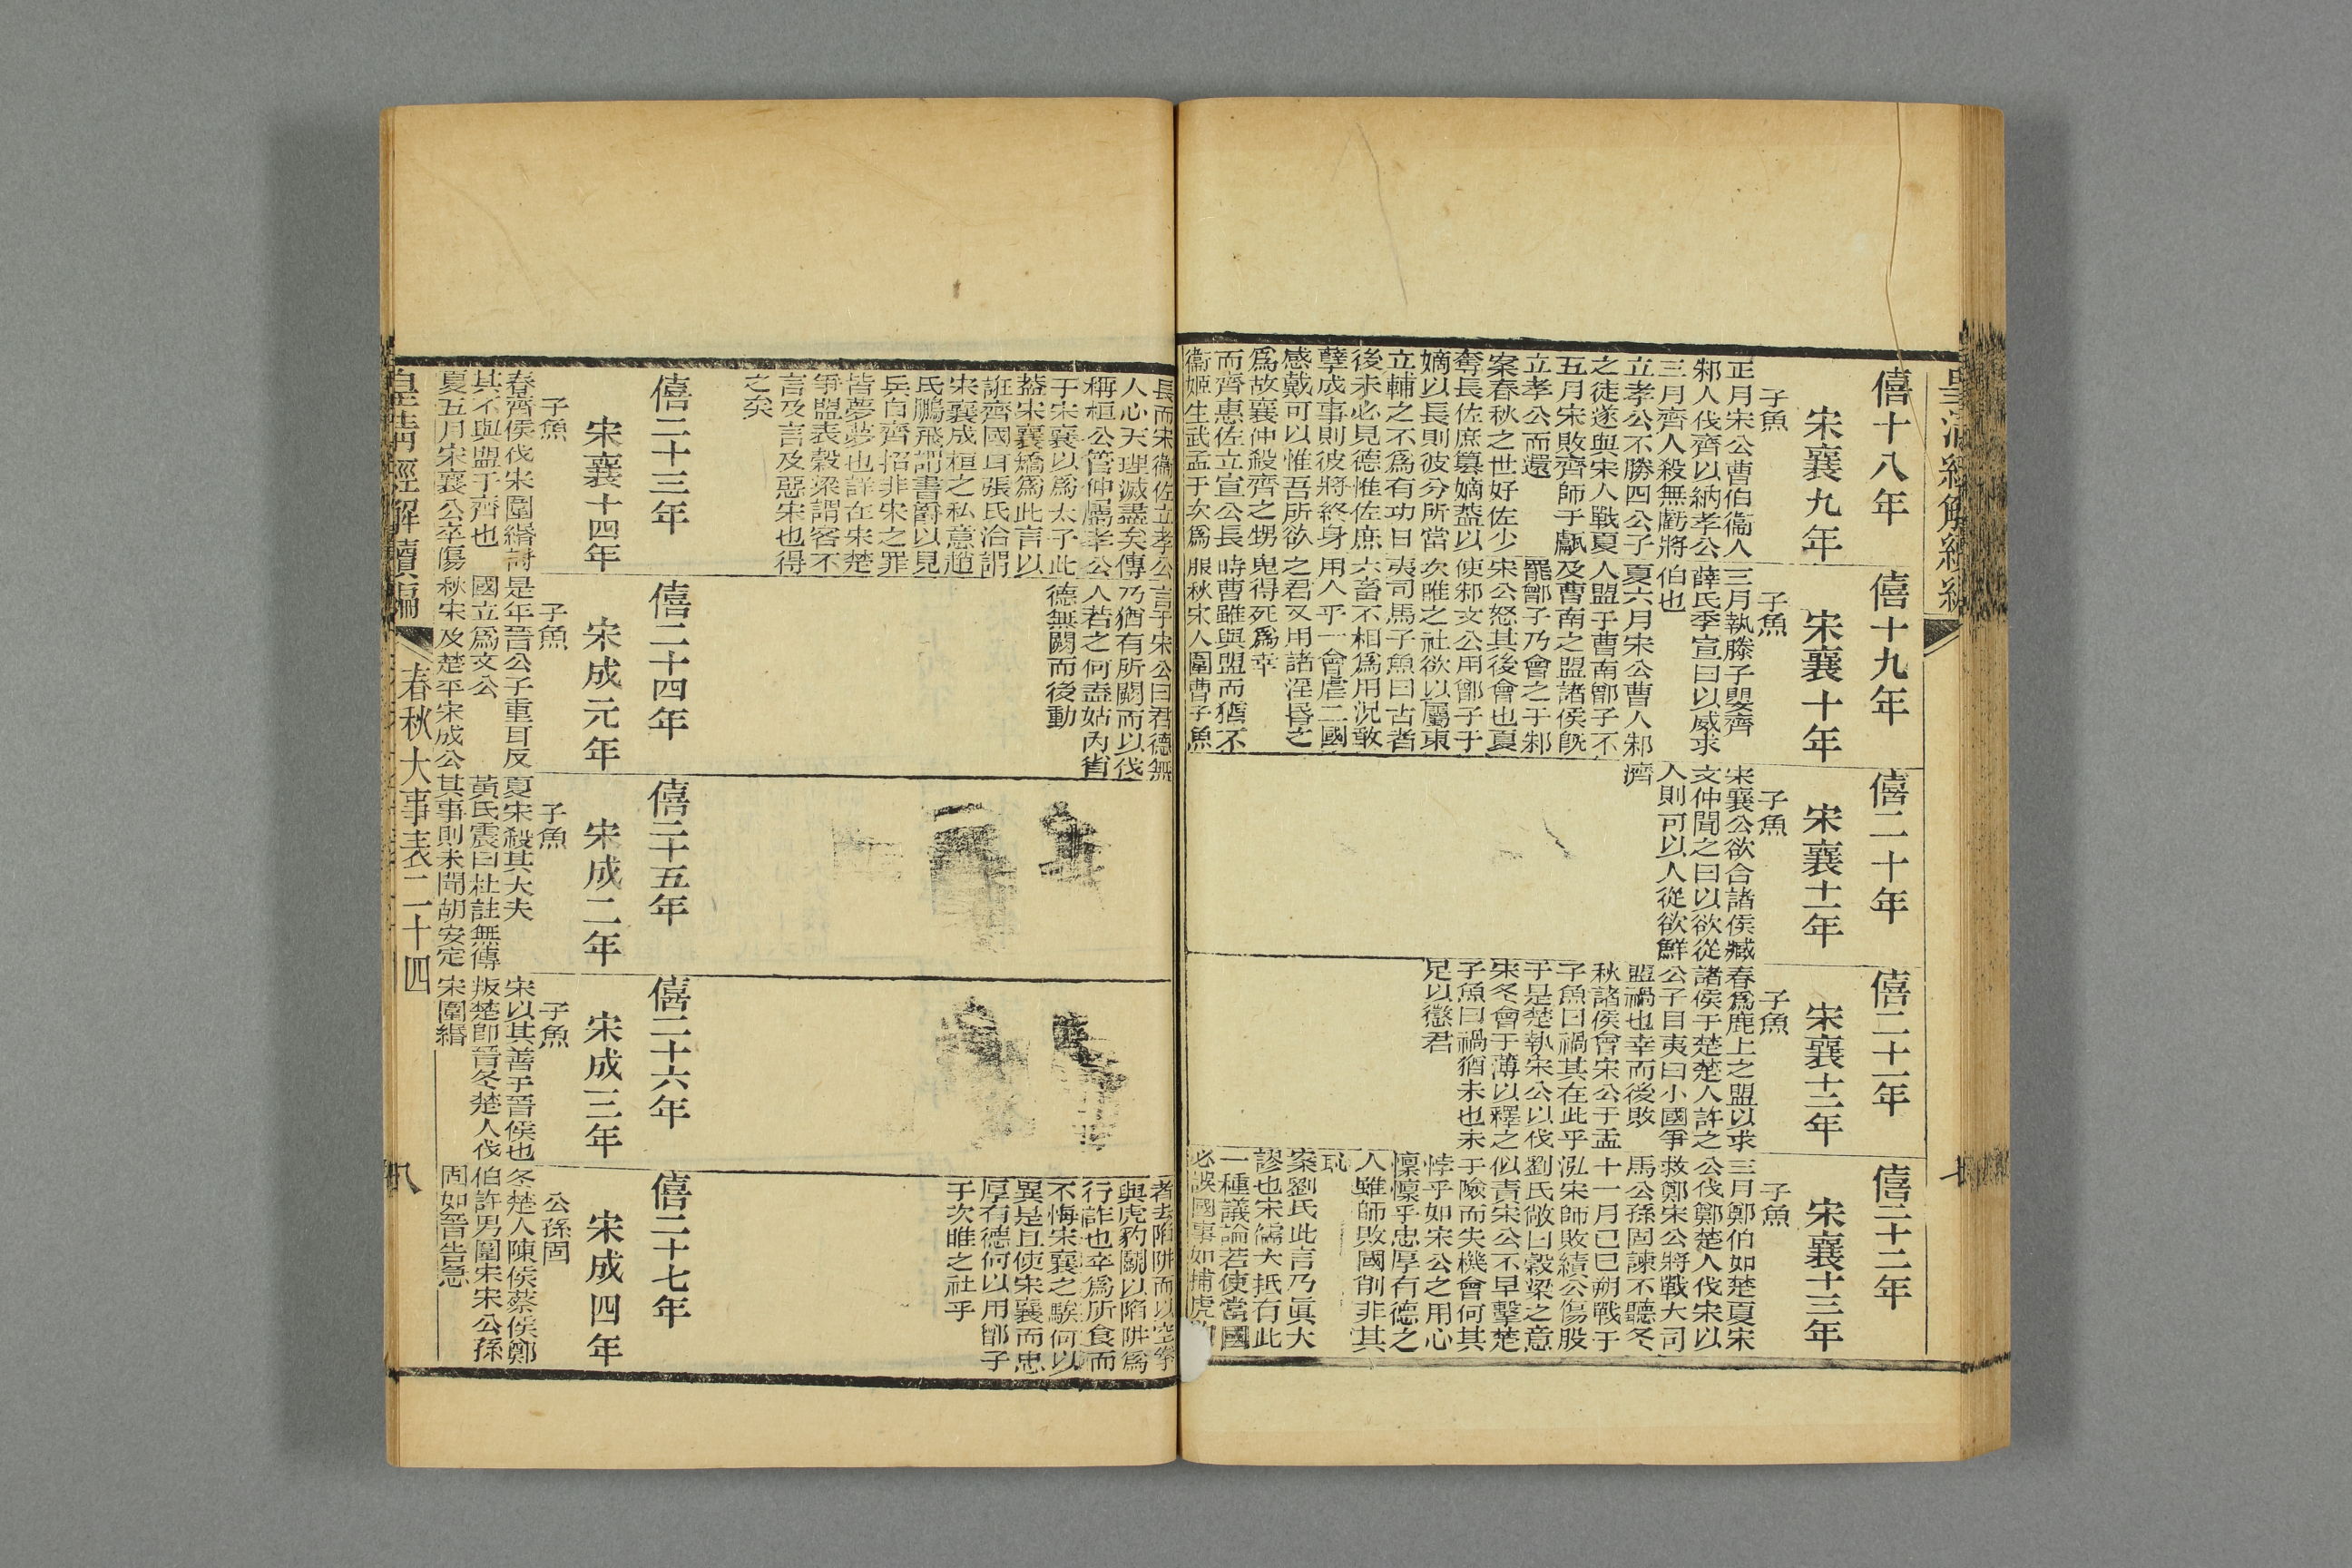 皇清經解續編
僖十八年
宋襄九年
子魚
正月宋公曹伯衞人
邾人伐齊以納孝公
三月齊人殺無虧將
立孝公不勝四公子
之徒遂與宋人戰夏
五月宋敗齊師于甗
立孝公而還
案春秋之世好佐少
奪長佐庶篡嫡葢以
嫡以長則彼分所當
立輔之不爲有功日
後未必見德惟佐庶
孽成事則彼將終身
感戴可以惟吾所欲
爲故襄仲殺齊之甥
而齊惠佐立宣公長
衞姬生武孟于次爲
僖十九年
宋襄十年
子魚
三月執滕子嬰齊
薛氏季宣曰以威求
伯也
夏六月宋公曹人邾
人盟于曹南鄫子不
及曹南之盟諸侯旣
罷鄫子乃會之于邾
宋公怒其後會也夏
使邾文公用鄫子于
次睢之社欲以屬東
夷司馬子魚曰古者
六畜不相爲用況敢
用人乎一會虐二國
之君又用諸淫昏之
鬼得死爲幸
時曹雖與盟而猶不
服秋宋人圍曹子魚
僖二十年
宋襄十一年
子魚
宋襄公欲合諸侯臧
文仲聞之曰以欲從
人則可以人從欲鮮
濟
僖二十一年
宋襄十二年
子魚
春爲鹿上之盟以求
諸侯于楚楚人許之
公子目夷曰小國爭
盟禍也幸而後敗
秋諸侯會宋公于盂
子魚曰禍其在此乎
于是楚執宋公以伐
宋冬會于薄以釋之
子魚曰禍猶未也未
足以懲君
僖二十二年
宋襄十三年
子魚
三月鄭伯如楚夏宋
公伐鄭楚人伐宋以
救鄭宋公將戰大司
馬公孫固諫不聽冬
十一月己巳朔戰于
泓宋師敗績公傷股
劉氏敞曰穀梁之意
似責宋公不早擊楚
于險而失機會何其
悖乎如宋公之用心
懔懔乎忠厚有德之
人雖師敗國削非其
恥
案劉氏此言乃眞大
謬也宋儒大抵有此
一種議論若使當國
必誤國事如捕虎
長而宋衞佐立孝公
人心天理滅盡矣傳
稱桓公管仲屬孝公
于宋襄以爲太子此
葢宋襄矯爲此言以
誑齊國耳張氏洽謂
宋襄成桓之私意趙
氏鵬飛謂書爵以見
兵自齊招非宋之罪
皆夢夢也詳在宋楚
爭盟表穀梁謂客不
言及言及惡宋也得
之矣
言于宋公曰君德無
乃猶有所闕而以伐
人若之何盍姑內省
德無闕而後動
者去陷阱而以空拳
與虎豹鬭以陷阱爲
行詐也卒爲所食而
不悔宋襄之騃何以
異是且使宋襄而忠
厚有德何以用鄫子
于次睢之社乎
僖二十三年
宋襄十四年
子魚
春齊侯伐宋圍緡討
其不與盟于齊也
夏五月宋襄公卒傷
僖二十四年
宋成元年
子魚
是年晉公子重耳反
國立爲文公
秋宋及楚平宋成公
僖二十五年
宋成二年
子魚
夏宋殺其大夫
黃氏震曰杜註無傳
其事則未聞胡安定
僖二十六年
宋成三年
子魚
宋以其善于晉侯也
叛楚卽晉冬楚人伐
宋圍緡
僖二十七年
宋成四年
公孫固
冬楚人陳侯蔡侯鄭
伯許男圍宋宋公孫
固如晉告急
皇淸經解續編
春秋大事表二十四
八